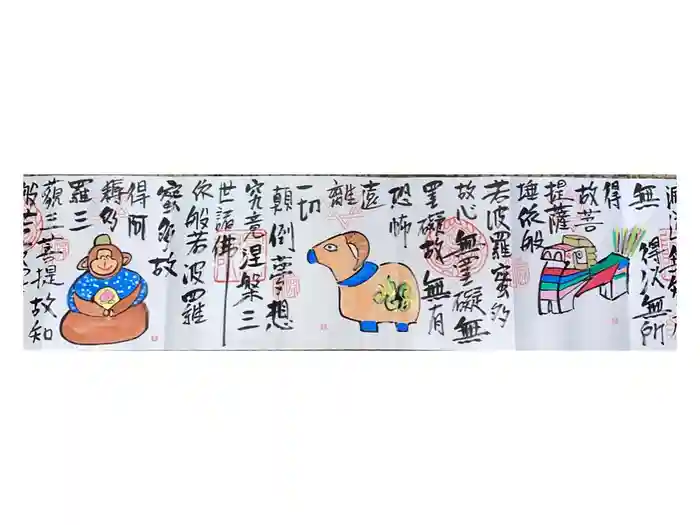 無得以無所
得
故菩
提薩
埵依般
若波羅蜜多
故心無罣礙無
罣礙故無有
恐怖
遠
離
一切
顛倒夢想
究竟涅槃三
世諸佛
依般若波羅
蜜多故
得阿
耨多
羅三
藐三菩提故知
般若